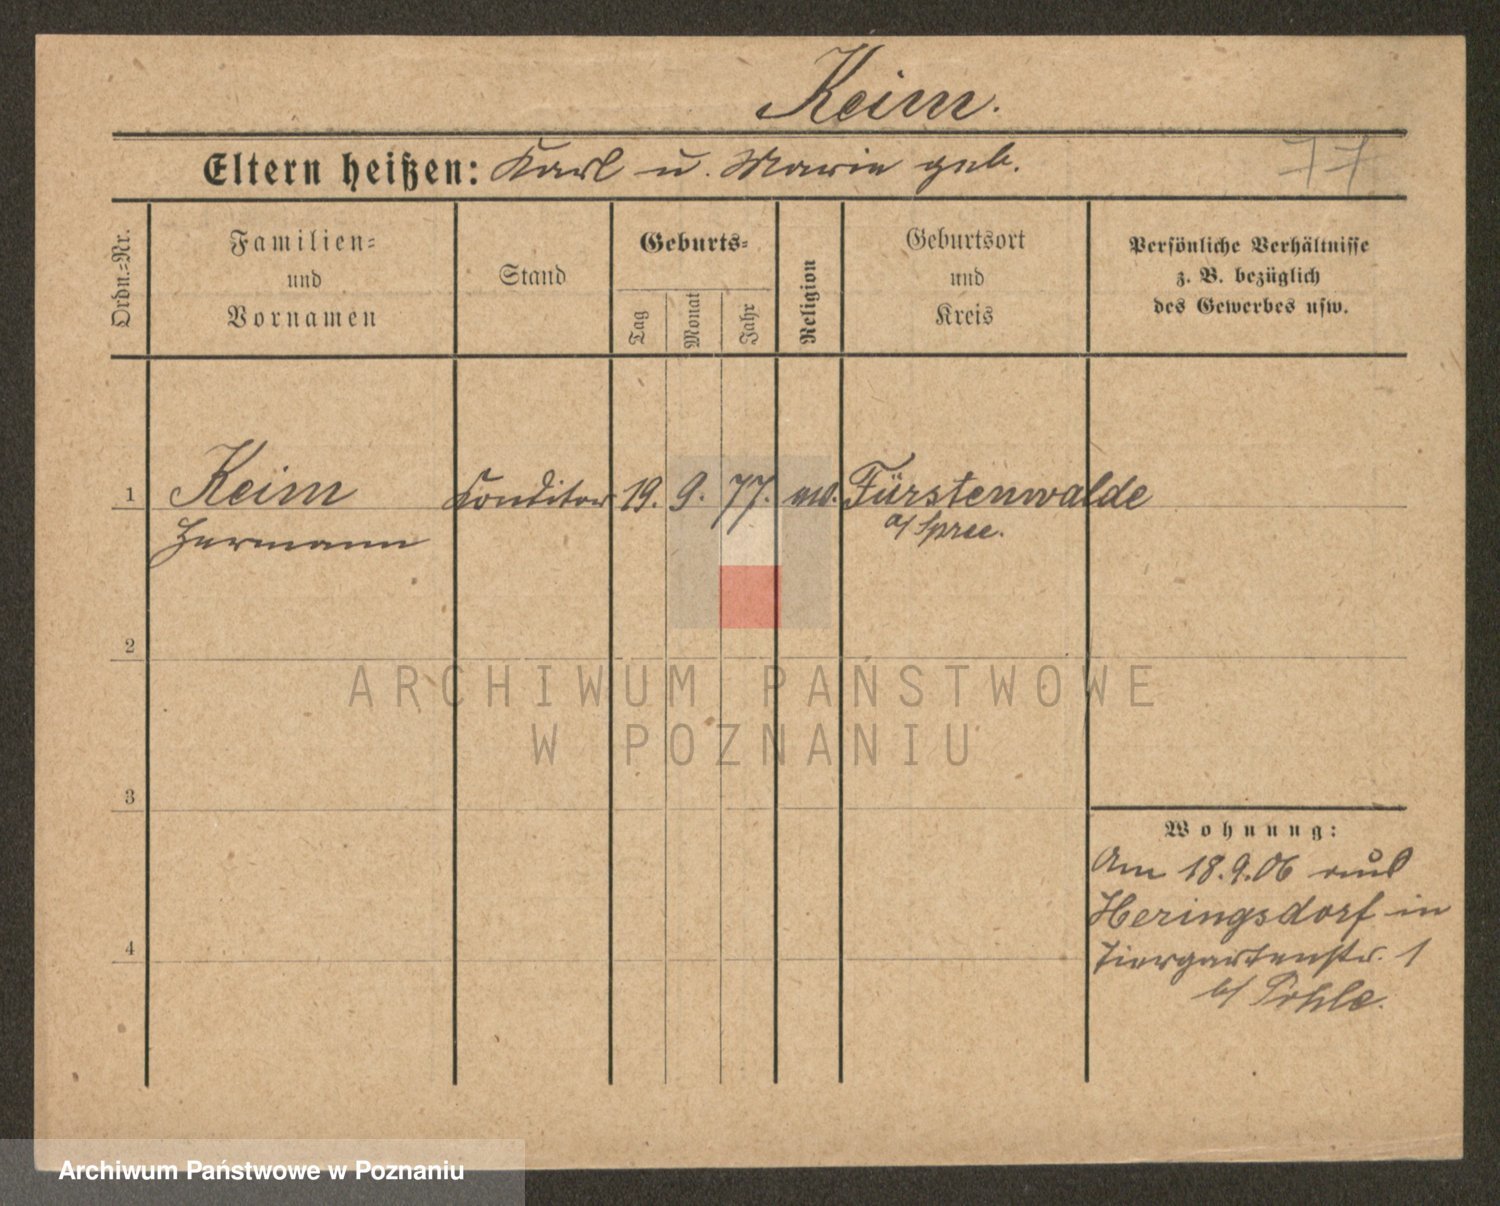 Keim.
Eltern heißen: Karl u. Marie geb.
77
Ordn.=Nr.
Familien=
und
Vornamen
Stand
Geburts=
Tag
Monat
Jahr
Religion
Geburtsort
und
Kreis
Persönliche Verhältnisse
z. B. bezüglich
des Gewerbes usw.
1 Keim Conditor 19. 9. 77. ev. Fürstenwalde
Hermann a/ Spree.
2
ARCHIWUM PAŃSTWOWE
W POZNANIU
3
Wohnung:
Am 18.9.06 aus
Heringsdorf in
4
Tiergartenstr. 1
b/ Pohle.
Archiwum Państwowe w Poznaniu